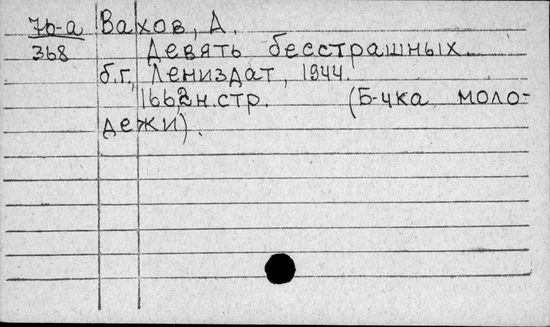 76-а Вахов, А.
368 Девять бесстрашных.
б.г., Лениздат, 1944.
166 2н.стр. (Б-чка моло-
дежи).